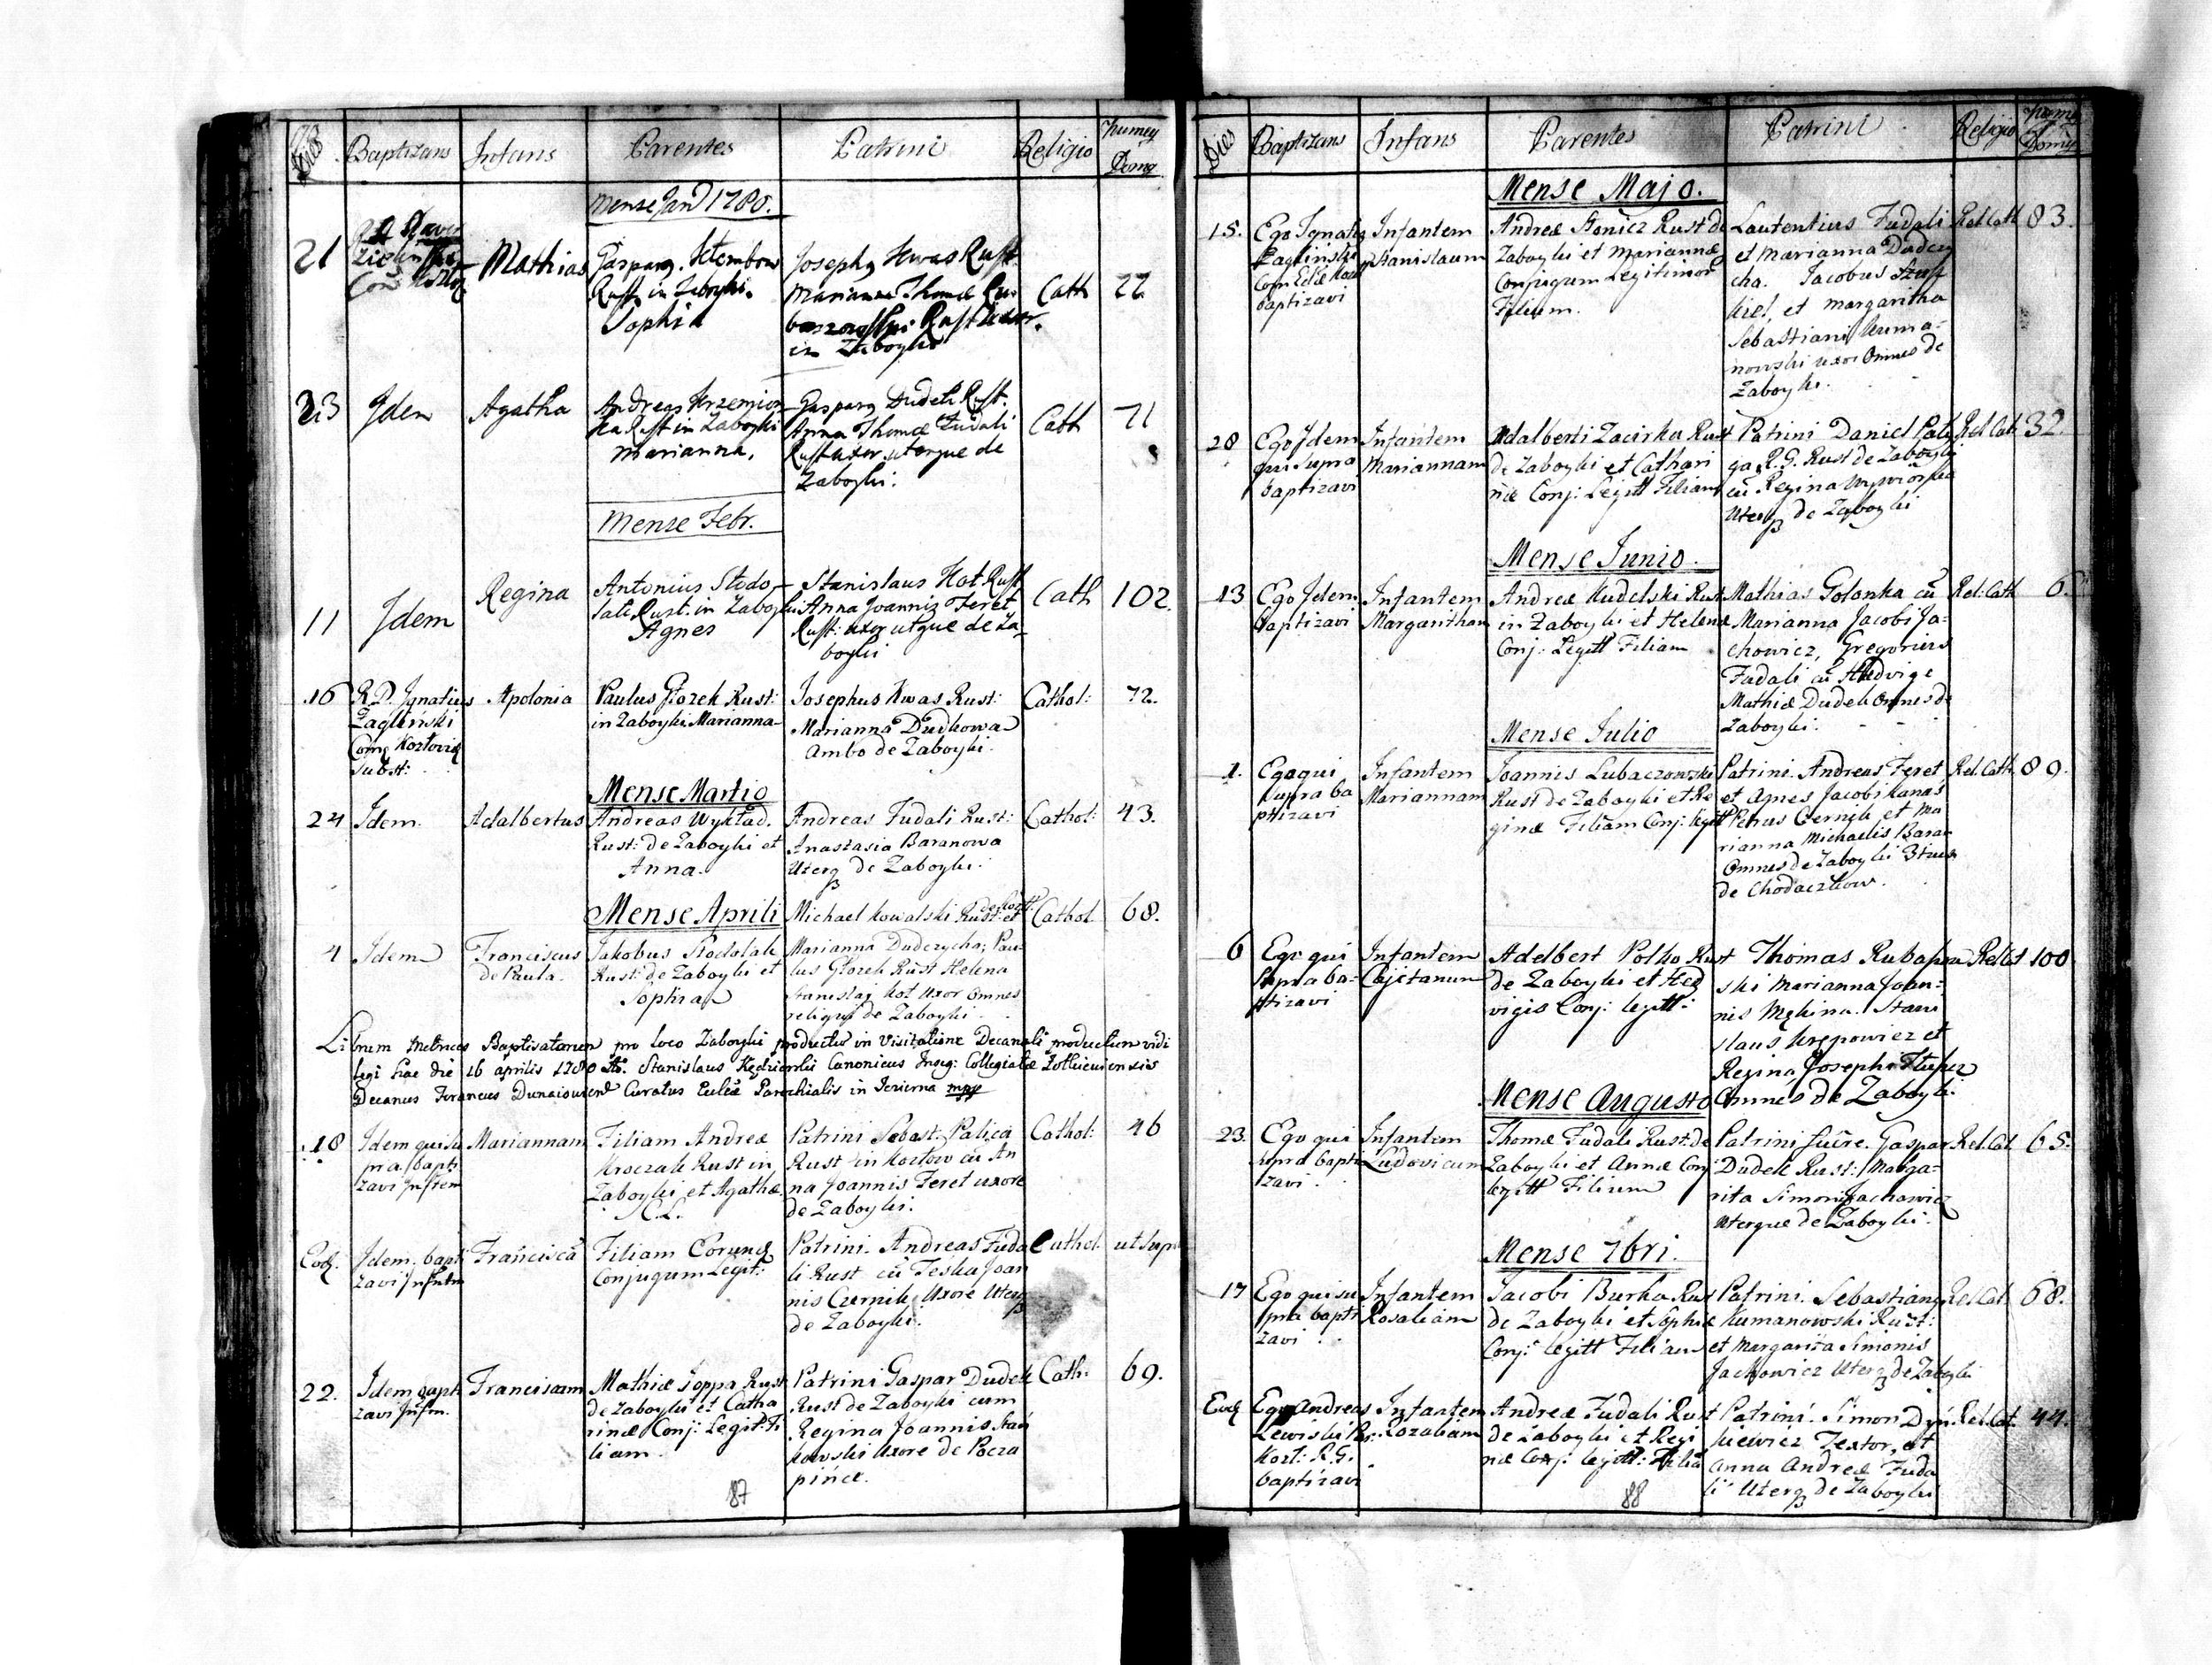 Dies Baptizans Infans Parentes Patrini Religio Numeg Domg
Mense Jan 1780.
21
Mathias
Gasparg
Rustg in Zaboyki.
Sophia
Josephg Kwas Rust.
Marianna Thomæ
Rust Uxor.
in Zaboyki
Cath
22
23 Idem Agatha
Andreas Krzemion
ka Rust in Zaboyki
Marianna,
Gasparg Dudek Rust.
Anna Thomæ Fudali
Rust uxor uterque de
Zaboyki.
Cath
71
Mense Febr.
11 Idem Regina
Antonius Stodo-
lak Rust: in Zaboyki
Agnes
Stanislaus Kot Rust
Anna Joannis Feret
Rust: uxor utque de Za-
boyki
Cath
102.
16
R.D. Ignatius
Zagliński
Comg Kozłovig
Subst:
Apolonia
Paulus Głozek Rust:
in Zaboyki Marianna
Josephus Kwas Rust:
Marianna Dudkowa
Ambo de Zaboyki.
Cathol:
72.
Mense Martio
24 Idem. Adalbertus
Andreas Wykład.
Rust: de Zaboyki et
Anna.
Andreas Fudali Rust:
Anastasia Baranowa
Uterq de Zaboyki.
Cathol:
43.
Mense Aprili
4 Idem
Franciscus
de Paula.
Jakobus Stodolak
Rust: de Zaboyki et
Sophia
Michael Kowalski Rust: et
Marianna Dudczycha; Pau-
lus Głozek Rust Helena
Stanislai Kot Uxor Omnes
reliqui de Zaboyki.
Cathol
68.
Librum Metrices Baptisatorum pro loco Zaboyki productu in Visitatione Decanali productum vidi
legi hac die 16 Aprilis 1780 Stanislaus Canonicus Collegiatæ
Decanus Curatus Parochialis in Jezierna mpp
18
Idem qui su
pra bapti
zavi Inftem
Mariannam
Filiam Andreæ
Kroczak Rust in
Zaboyki et Agathæ
C.L.
Patrini Sebast: Palica
Rust in Kozłow cũ An
na Joannis Feret uxore
de Zaboyki.
Cathol:
46
Eodg.
Idem bapti
zavi Infntm
Franciscã
Filiam Eorundg
Conjugum Legit:
Patrini. Andreas Fuda
li Rust cũ Teska Joan
nis Czernik Uxore Uterq
de Zaboyki.
Cathol.
ut supr
22.
Idem bapti
zavi Infm.
Franciscam
Mathiæ Soppa Rust
de Zaboyki et Catha
rinæ Conj: Legit: Fi
liam.
Patrini Gaspar Dudek
Rust de Zaboyki cum
Regina Joannis Stań
kowski Uxore de Pocza
pińce.
Cath:
69.
87
Dies Baptizans Infans Parentes Patrini Religio
Mense Majo.
15.
Ego Ignatig
Zagliński
baptizavi
Infantem
Stanislaum
Andreæ Honicz Rust de
Zaboyki et Mariannæ
Conjugum Legitimor
Filium.
Laurentius Fudali
et Marianna Dudczy
cha. Jacobus
et Margaritha
Sebastiani Kuma-
nowski uxor Omnes de
Zaboyki.
Rel Cath
83.
28
Ego Idem
qui supra
baptizavi
Infantem
Mariannam
Adalberti Zacirka Rust
de Zaboyki et Cathari
næ Conj: Legitt Filiam
Patrini Daniel
ga R.G. Rust de Zaboyki
cũ Regina
Uterq de Zaboyki
Rel Cat
32.
Mense Junio.
13
Ego Idem
baptizavi
Infantem
Margaritham
Andreæ Kudelski Rust
in Zaboyki et Helenæ
Conj: Legitt Filiam
Mathias Golonka cũ
Marianna Jacobi Ja-
chowicz, Gregorius
Fudali cũ Hedvige
Mathiæ Dudek Omnes de
Zaboyki.
Rel: Cath
6.
Mense Julio
1.
Ego qui
supra ba
ptizavi
Infantem
Mariannam
Joannis Lubaczowski
Rust de Zaboyki et Re
ginæ Filiam Conj: legitt
Patrini. Andreas Feret
et Agnes Jacobi Kanas
Petrus Czernik et Ma
rianna Michaelis Baran
Omnes de Zaboyki
de Chodaczkow.
Rel: Cath.
89.
6
Ego qui
supra ba-
ptizavi
Infantem
Cajetanum
Adelbert Polko Rust
de Zaboyki et Hed
vigis Conj: legitt:
Thomas
ski Marianna Joan-
nis Mękina. Stani
slaus Krępowicz et
Regina Josephi
Omnes de Zaboyki.
Rel Cat
100
Mense Augusto
23.
Ego qui
supra bapti
zavi.
Infantem
Ludovicum
Thomæ Fudali Rust: de
Zaboyki et Annæ Conj
legitt Filium
Patrini fuere. Gaspar
Dudek Rust: Marga-
rita Simonis Jachowicz
Uterque de Zaboyki.
Rel: Cat
65.
Mense 7bri.
17
Ego qui su
pra bapti
zavi
Infantem
Rosaliam
Jacobi Burka Rust
de Zaboyki et Sophiæ
Conj: legitt Filiam
Patrini. Sebastiang
Kumanowski Rust:
et Margarita Simonis
Jachowicz Uterq de Zaboyki
Rel: Cat
68.
Eodg
Ego Andreas
Lewiski Par:
Kozł: R.G.
baptizavi
Infantem
Rozaliam
Andreæ Fudali Rust
de Zaboyki et Regi
næ Conj: legitt: Filiã
Patrini. Simon Dyń
kiewicz Textor, et
Anna Andreæ Fuda
li Uterq de Zaboyki
Rel: Cat.
44.
88